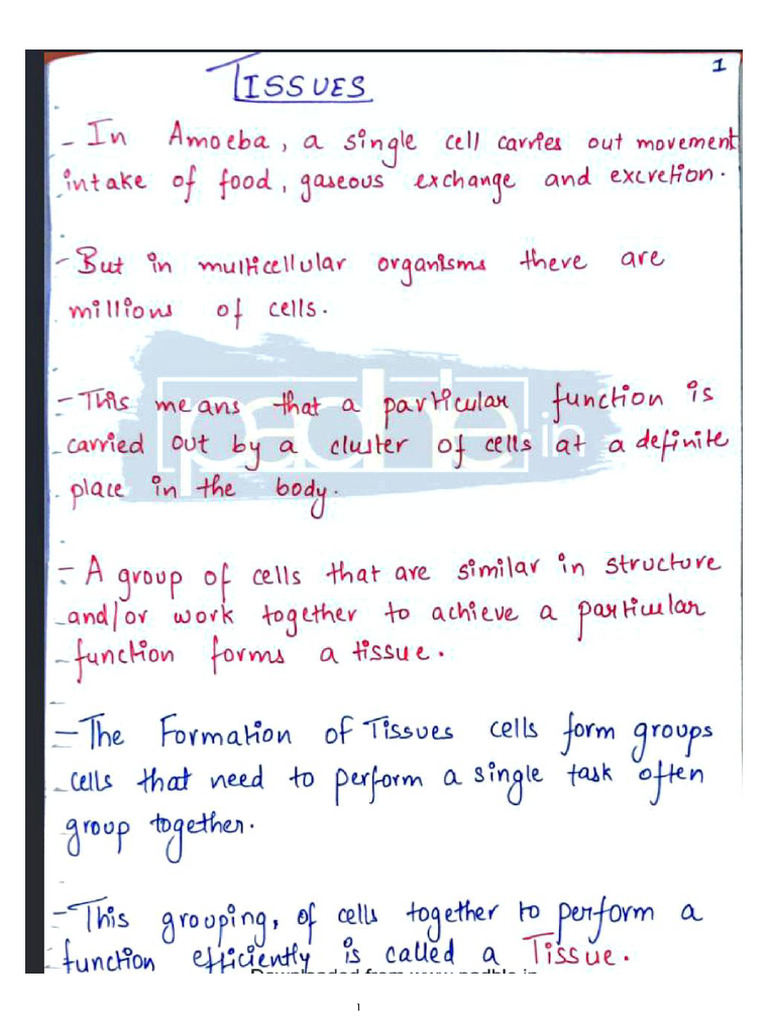 1
TISSUES
- In Amoeba, a single cell carries out movement
intake of food, gaseous exchange and excretion.
- But in multicellular organisms there are
millions of cells.
- This means that a particular function is
carried out by a cluster of cells at a definite
place in the body.
- A group of cells that are similar in structure
and/or work together to achieve a particular
function forms a tissue.
- The Formation of Tissues cells form groups
cells that need to perform a single task often
group together.
- This grouping, of cells together to perform a
function efficiently is called a Tissue.
padhle.in
1